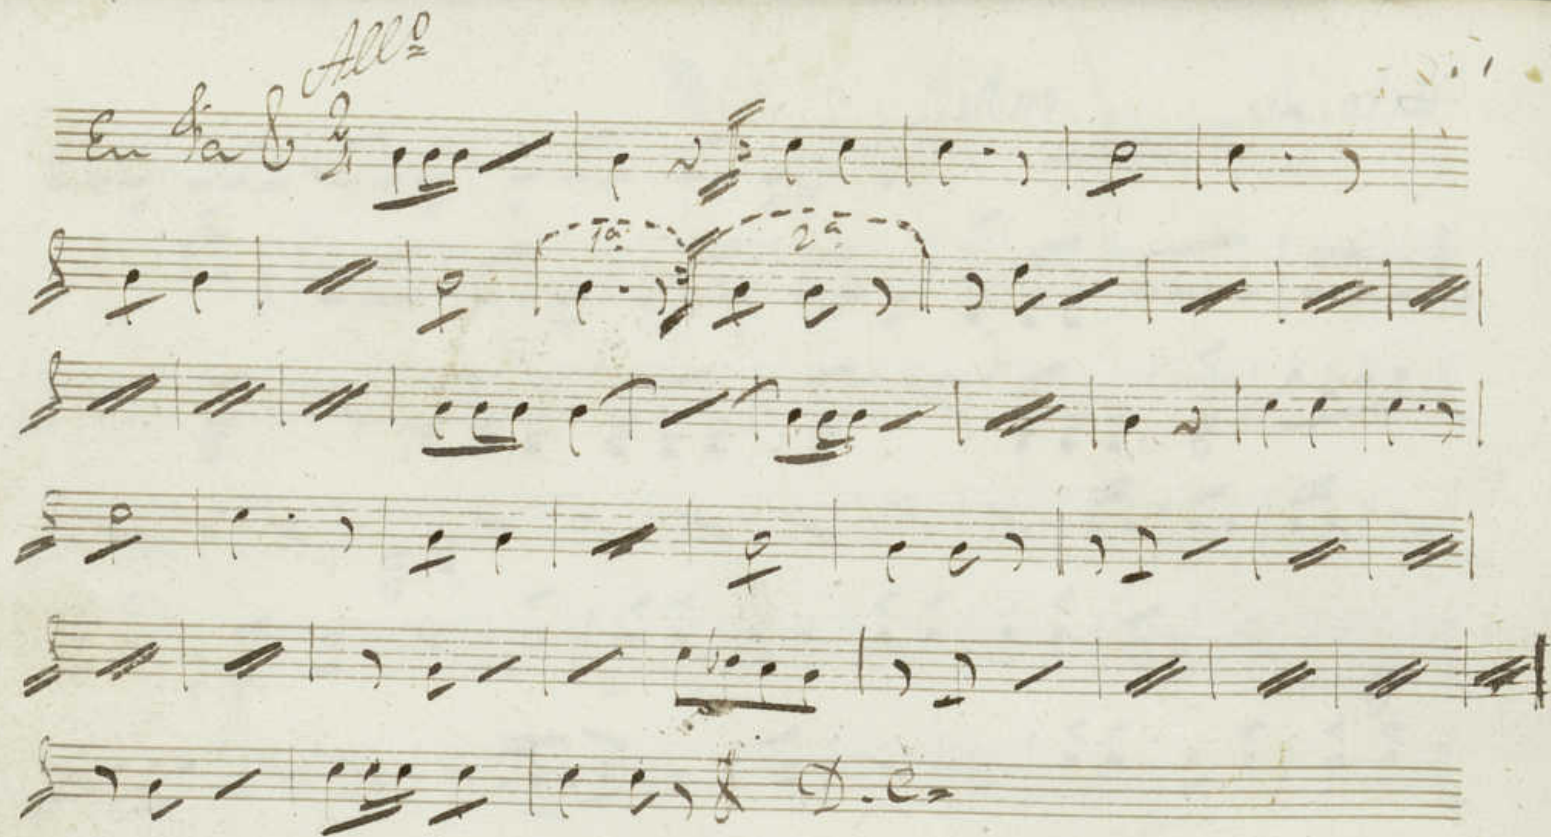 All.º
En Fa 2/4
1ª 2ª
D. C.